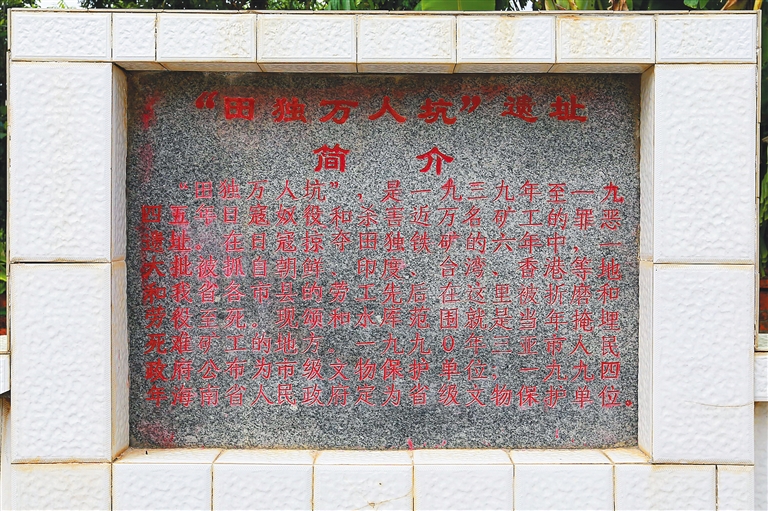 “田独万人坑”遗址
简 介
“田独万人坑”，是一九三九年至一九
四五年日寇奴役和杀害近万名矿工的罪恶
遗址。在日寇掠夺田独铁矿的六年中，一
大批被抓自朝鲜、印度、台湾、香港等地
和我省各市县的劳工先后在这里被折磨和
劳役至死。现颂和水库范围就是当年掩埋
死难矿工的地方。一九九0年三亚市人民
政府公布为市级文物保护单位；一九九四
年海南省人民政府定为省级文物保护单位。